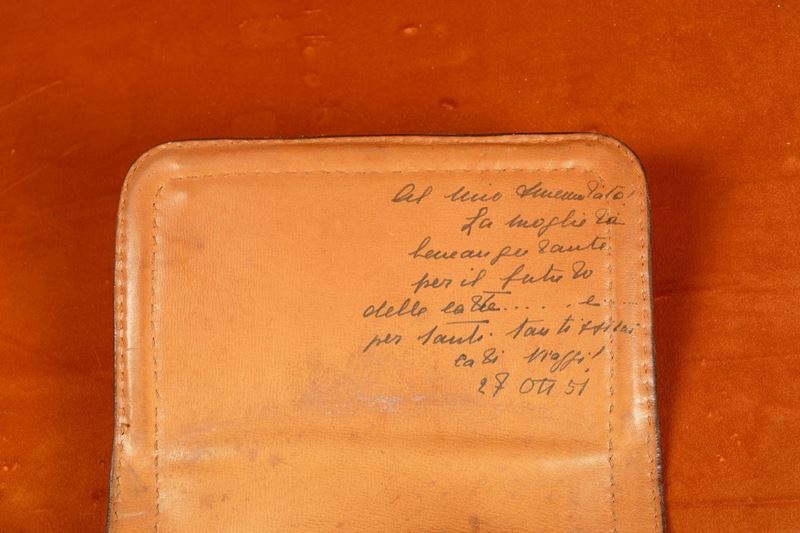 Al mio smemorato!
La moglie tua
beneaugurante
per il futuro
delle carte..... e....
per tanti tantissimi
cari viaggi!
27 Ott 51